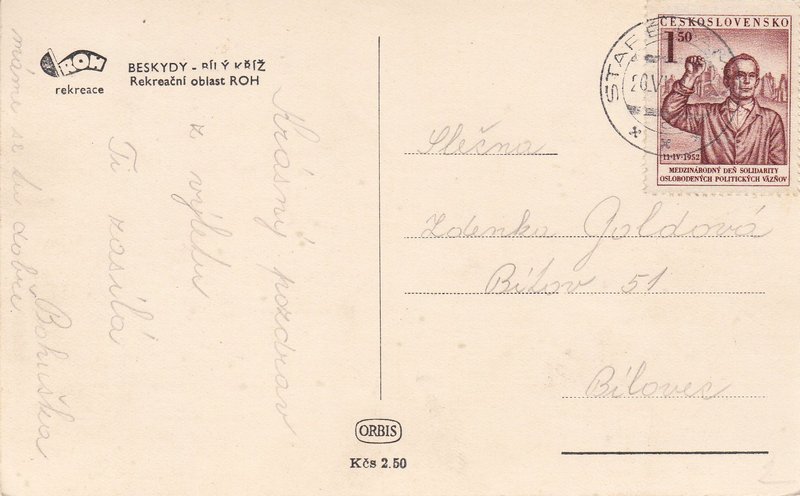 ROH
rekreace
BESKYDY - BÍLÝ KŘÍŽ
Rekreační oblast ROH
Krásný pozdrav
z výletu
Ti zasílá
Bohuška
máme se tu dobře.
ORBIS
Kčs 2.50
ČESKOSLOVENSKO
1 50
11·IV·1952
MEDZINÁRODNÝ DEŇ SOLIDARITY
OSLOBODENÝCH POLITICKÝCH VÄZŇOV
Slečna
Zdenka Goldová
Bítov 51
Bílovec